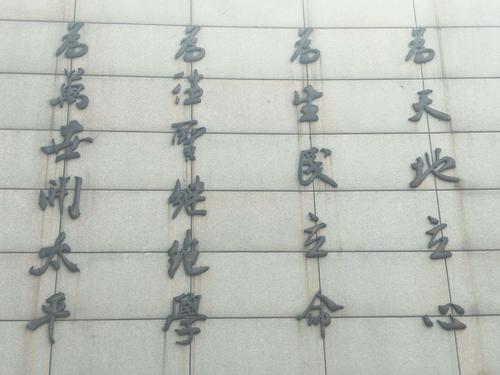 為天地立心
為生民立命
為往聖継絶學
為萬世開太平